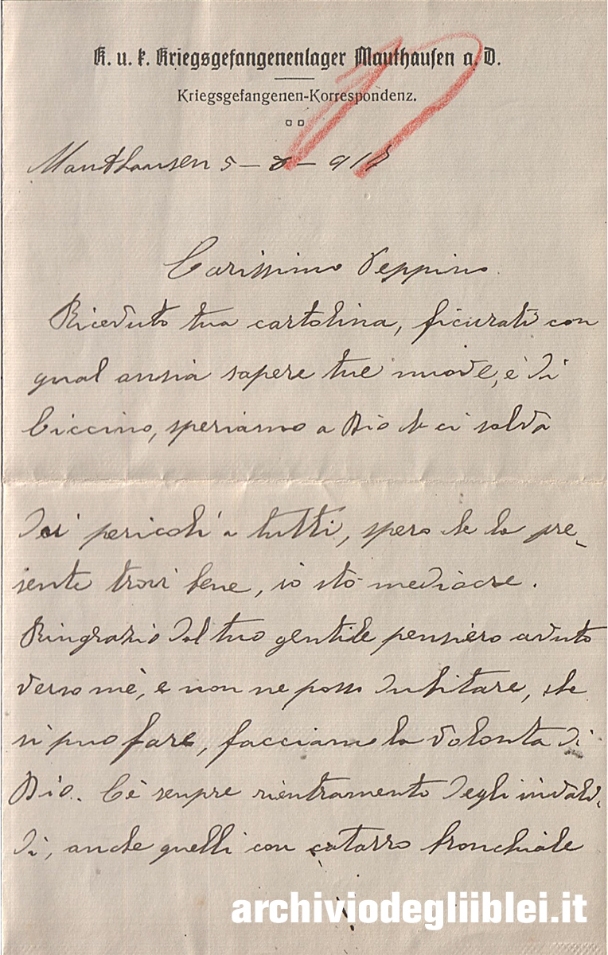 K. u. k. Kriegsgefangenenlager Mauthausen a. D.
Kriegsgefangenen-Korrespondenz.
Mauthausen 5 - 8 - 917
Carissimo Peppino.
Riceduto tua cartolina, ficurati con
qual ansia sapere tue nuove, e di
Ciccino, speriamo a Dio che ci salva
dai pericoli a tutti, spero che la pre-
sente trovi bene, io stò mediocre.
Ringrazio del tuo gentile pensiero avuto
verso mè, e non ne posso dubitare, che
si può fare, facciamo la volonta di
Dio. C'è senpre rientramento degli invali-
di, anche quelli con catarro bronchiale
archiviodegliiblei.it